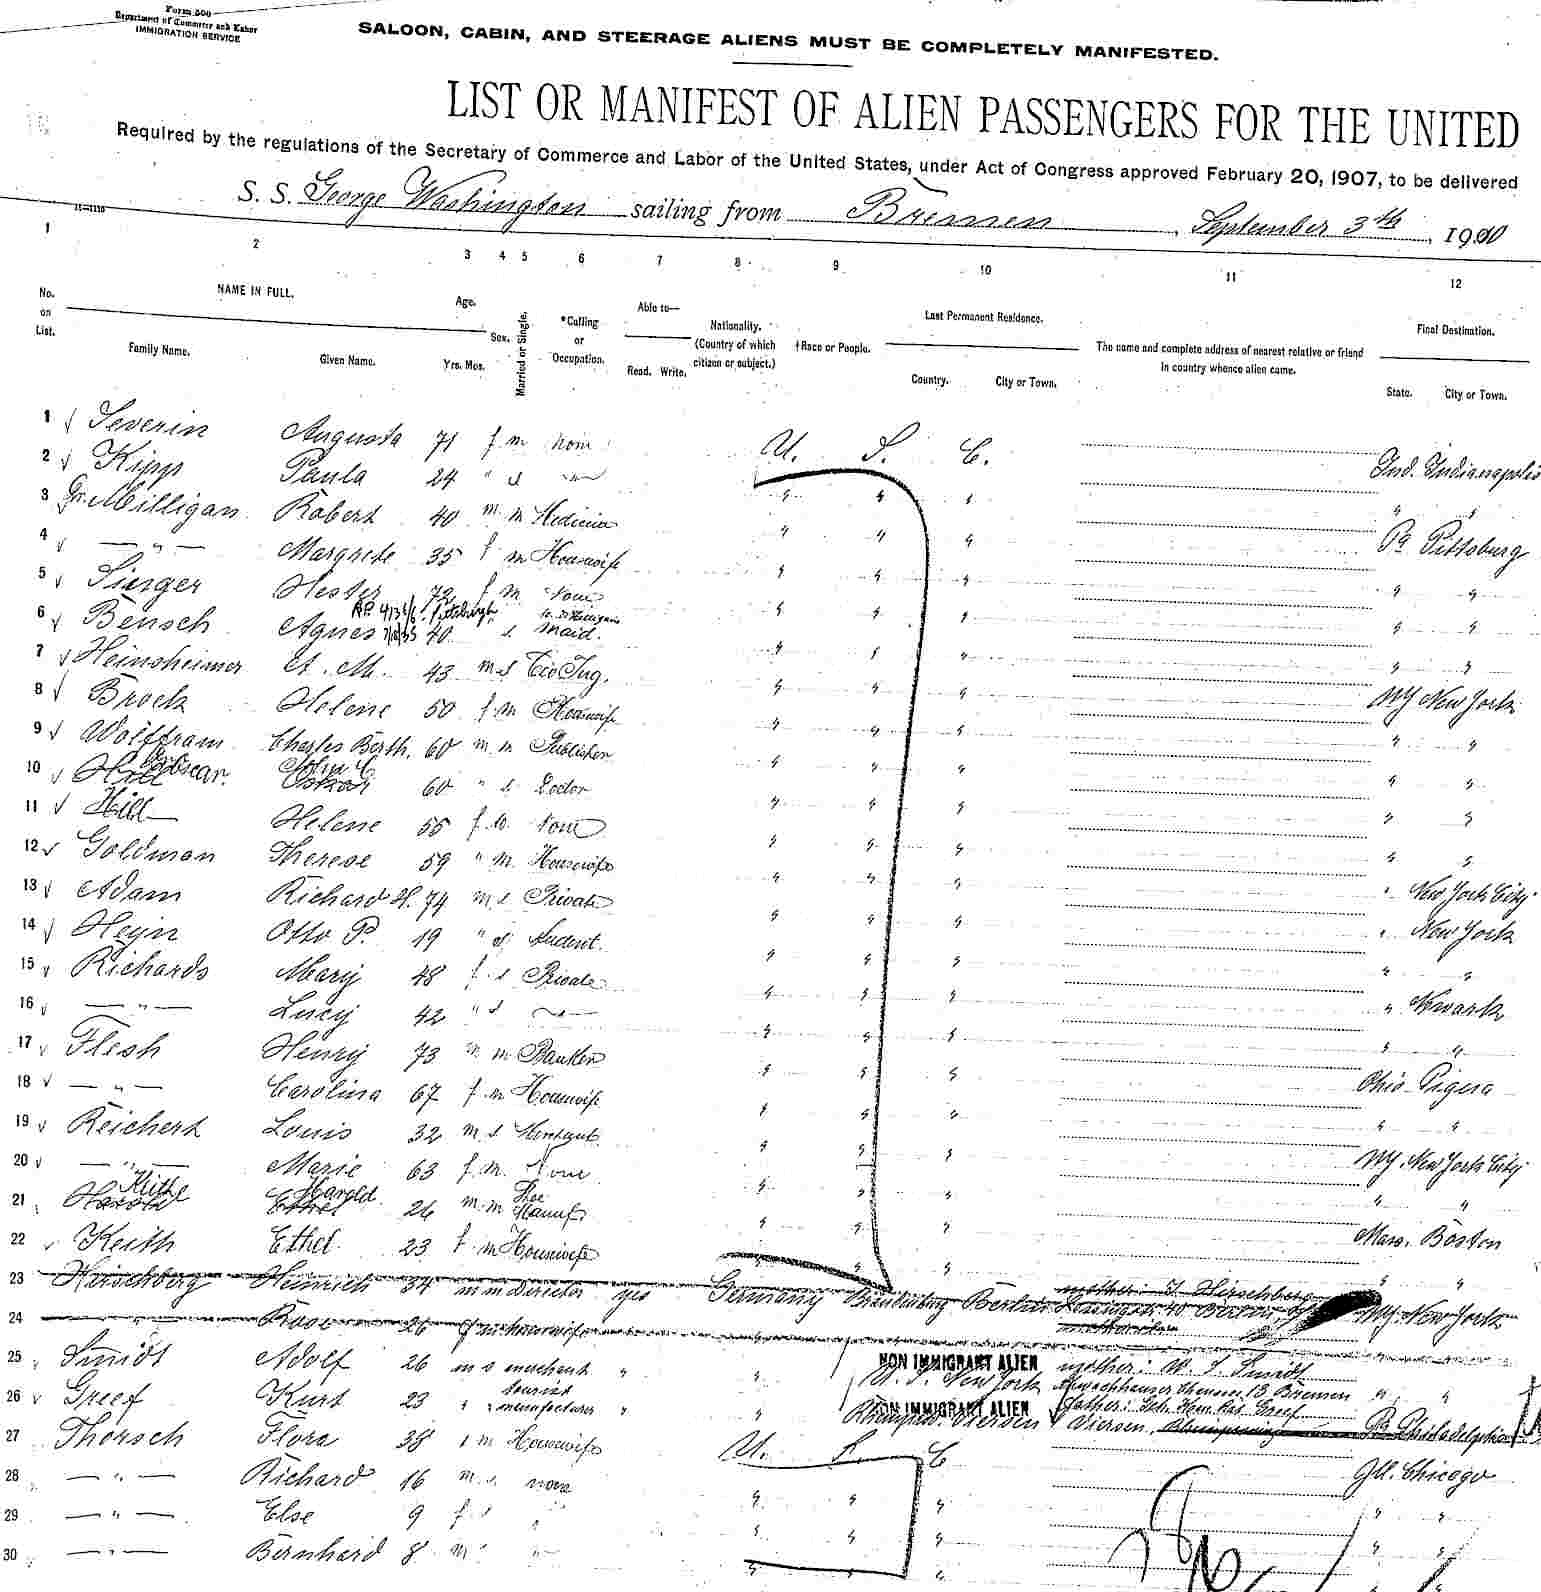 Form 500
Department of Commerce and Labor
IMMIGRATION SERVICE
SALOON, CABIN, AND STEERAGE ALIENS MUST BE COMPLETELY MANIFESTED.
LIST OR MANIFEST OF ALIEN PASSENGERS FOR THE UNITED
Required by the regulations of the Secretary of Commerce and Labor of the United States, under Act of Congress approved February 20, 1907, to be delivered
S. S. George Washington sailing from Bremen, September 3th, 1910
1 2 3 4 5 6 7 8 9 10 11 12
No. on List.
NAME IN FULL.
Family Name. Given Name.
Age.
Yrs. Mos.
Sex.
Married or Single.
*Calling or Occupation.
Able to—
Read. Write.
Nationality. (Country of which citizen or subject.)
†Race or People.
Last Permanent Residence.
Country. City or Town.
The name and complete address of nearest relative or friend in country whence alien came.
Final Destination.
State. City or Town.
1 Severin Augusta 71 f m none U. S. C. Ind. Indianapolis
2 Kipp Paula 24 " s " " " " "
3 Milligan Robert 40 m m " " " Pa Pittsburg
4 — " — Margrete 35 f m Housewife " " " " "
5 Singer Hester 72 f m None " " " " "
6 Bensch Agnes 40 s maid " " " " "
7 Heinsheimer A. M. 43 m s " " " NY New York
8 Brock Helene 50 f m Housewife " " " " "
9 Wolffram Charles Berth. 60 m m Publisher " " " " "
10 Oscar John C 60 " s Doctor " " " " "
11 Hill Helene 55 f None " " " " "
12 Goldman Therese 59 " m Housewife " " " " New York City
13 Adam Richard H. 74 m s Private " " " " New York
14 Heyn Otto P. 19 " s student. " " " " "
15 Richards Mary 48 f s Private " " " " Newark
16 — " — Lucy 42 " s " " " " "
17 Flesh Henry 73 m m Banker " " " Ohio Piqua
18 — " — Carolina 67 f m Housewife " " " " "
19 Reichert Louis 32 m s " " " NY. New York City
20 — " — Marie 63 f m. None " " " " "
21 Harold 26 m m " " " Mass. Boston
22 Keith Ethel 23 f m Housewife " " " " "
23 Hirschberg Heinrich 34 m m Director yes Germany Brandenburg Berlin mother: J. Hirschberg NY New York
24 Rose 26 f m housewife
25 Smidt Adolf 26 m s merchant " " NON IMMIGRANT ALIEN mother: W. S. Smidt
U. S. New York 13 Bremen " "
26 Greef Kurt 23 " " manufacturer " " NON IMMIGRANT ALIEN father: Greef
Viersen Viersen, Pa Philadelphia
27 Thorsch Flora 38 f m Housewife U. S. C Ill. Chicago
28 — " — Richard 16 m s none " " " " "
29 — " — Else 9 f s " " " " " "
30 — " — Bernhard 8 m " " " " " "